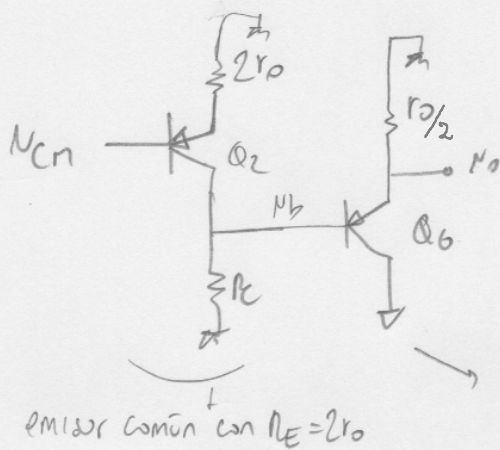 2ro
ro/2
Ncm
Q2
No
Nb
Q6
Rc
emisor común con RE=2ro